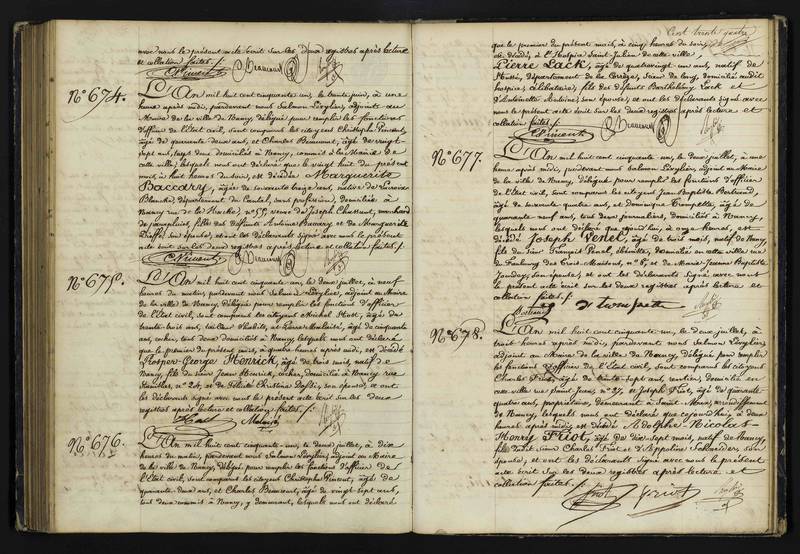 avec nous le présent acte écrit sur les deux registres après lecture
et collation faites ./.
C. Vincent C Beaumont
N° 674.
L'An mil huit cent cinquante un, le trente juin, à une
heure après midi, pardevant nous Salmon Lévylier, adjoint au
Maire de la ville de Nancy, délégué pour remplir les fonctions
d'officier de l'Etat civil, sont comparus les citoyens Christophe Vincent,
âgé de quarante deux ans, et Charles Beaumont, âgé de vingt
sept ans, tous deux domiciliés à Nancy, commis à la Mairie de
cette ville; lesquels nous ont déclaré que le vingt huit du présent
mois, à huit heures du soir, est décédée Marguerite
Baccary, âgée de soixante treize ans, native de
département du Cantal, sans profession, domiciliée à
Nancy rue de la n° 55, veuve de Joseph Chassant, marchand
de parapluies, fille des défunts Antoine Baccary et de Marguerite
son épouse; et ont les déclarants signé avec nous le présent
acte écrit sur les deux registres après lecture et collation faites ./.
C. Vincent C Beaumont
N° 675.
L'An mil huit cent cinquante un, le deux juillet, à neuf
heures du matin, pardevant nous Salmon Lévylier, adjoint au Maire
de la ville de Nancy, délégué pour remplir les fonctions d'officier
de l'Etat civil, sont comparus les citoyens Michel Huot, âgé de
trente trois ans, tailleur d'habits, et Pierre âgé de cinquante
ans, cocher, tous deux domiciliés à Nancy; lesquels nous ont déclaré
que le premier du présent mois, à quatre heures après midi, est décédé
Prosper-George Henrick, âgé de trois mois, natif de
Nancy, fils du sieur Jean Henrick, cocher, domicilié à Nancy rue
Stanislas, n° 24, et de Félicité Christine son épouse; et ont
les déclarants signé avec nous le présent acte écrit sur les deux
registres après lecture et collation faites ./.
N° 676.
L'An mil huit cent cinquante-un, le deux juillet, à dix
heures du matin, pardevant nous Salmon Lévylier, adjoint au Maire
de la ville de Nancy, délégué pour remplir les fonctions d'officier de
l'Etat civil, sont comparus les citoyens Christophe Vincent, âgé de
quarante-deux ans, et Charles Beaumont, âgé de vingt-sept ans,
tous deux commis à Nancy, y demeurant, lesquels nous ont déclaré
Cent trente quatre
que le premier du présent mois, à cinq heures du soir,
est décédé, à l'hospice Saint-Julien de cette ville
Pierre Lack, âgé de quatrevingt un ans, natif de
département de la Corrèze, scieur de long, domicilié audit
hospice, célibataire, fils des défunts Barthélemy Lack et
d'Antoinette Antoine, son épouse; et ont les déclarants signé avec
nous le présent acte écrit sur les deux registres après lecture et
collation faites ./.
C. Vincent C Beaumont
N° 677.
L'An mil huit cent cinquante un, le deux juillet, à une
heure après midi, pardevant nous Salmon Lévylier, adjoint au Maire
de la ville de Nancy, délégué pour remplir les fonctions d'officier
de l'Etat civil, sont comparus les citoyens Jean Baptiste Bertrand,
âgé de soixante quatre ans, et Dominique Trompette, âgé de
quarante neuf ans, tous deux journaliers, domiciliés à Nancy,
lesquels nous ont déclaré que cejourd'hui, à onze heures, est
décédé Joseph Penel, âgé de trois mois, natif de Nancy,
fils du sieur François Penel, ébéniste, domicilié en cette ville rue
du Faubourg des Trois Maisons, n° 65, et de Marie-Jeanne Baptiste
son épouse; et ont les déclarants signé avec nous
le présent acte écrit sur les deux registres après lecture et
collation faites ./.
Bertrand D trompette
N° 678.
L'An mil huit cent cinquante un, le deux juillet, à
trois heures après midi, pardevant nous Salmon Lévylier,
adjoint au Maire de la ville de Nancy, délégué pour remplir
les fonctions d'officier de l'Etat civil, sont comparus les citoyens
Charles Friot, âgé de trente sept ans, rentier, domicilié en
cette ville rue Saint Jean, n° 27, et Joseph Friot, âgé de quarante
quatre ans, propriétaire, demeurant à Saint-Max, arrondissement
de Nancy, lesquels nous ont déclaré que cejourd'hui, à deux
heures après midi, est décédé Adolphe-Nicolas-
Henry Friot, âgé de dix-sept mois, natif de Nancy,
fils dudit sieur Charles Friot et d'Appoline son
épouse; et ont les déclarants signé avec nous le présent
acte écrit sur les deux registres après lecture et
collation faites ./.
friot friot